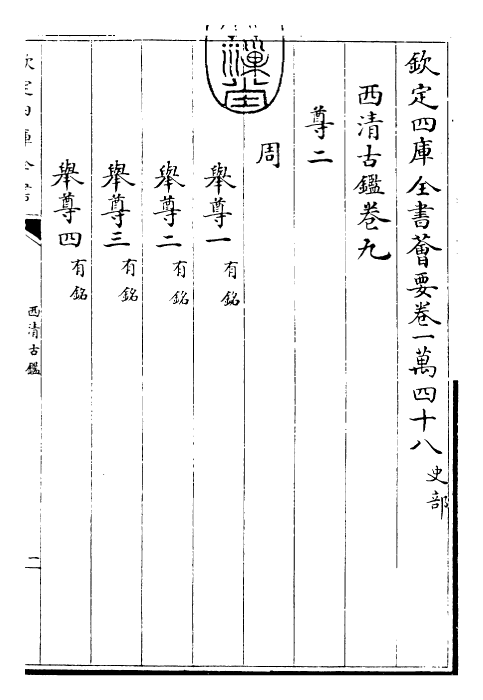 欽定四庫全書薈要卷一萬四十八史部
西清古鑑卷九
尊二
周
舉尊一有銘
舉尊二有銘
舉尊三有銘
舉尊四有銘
西清古鑑